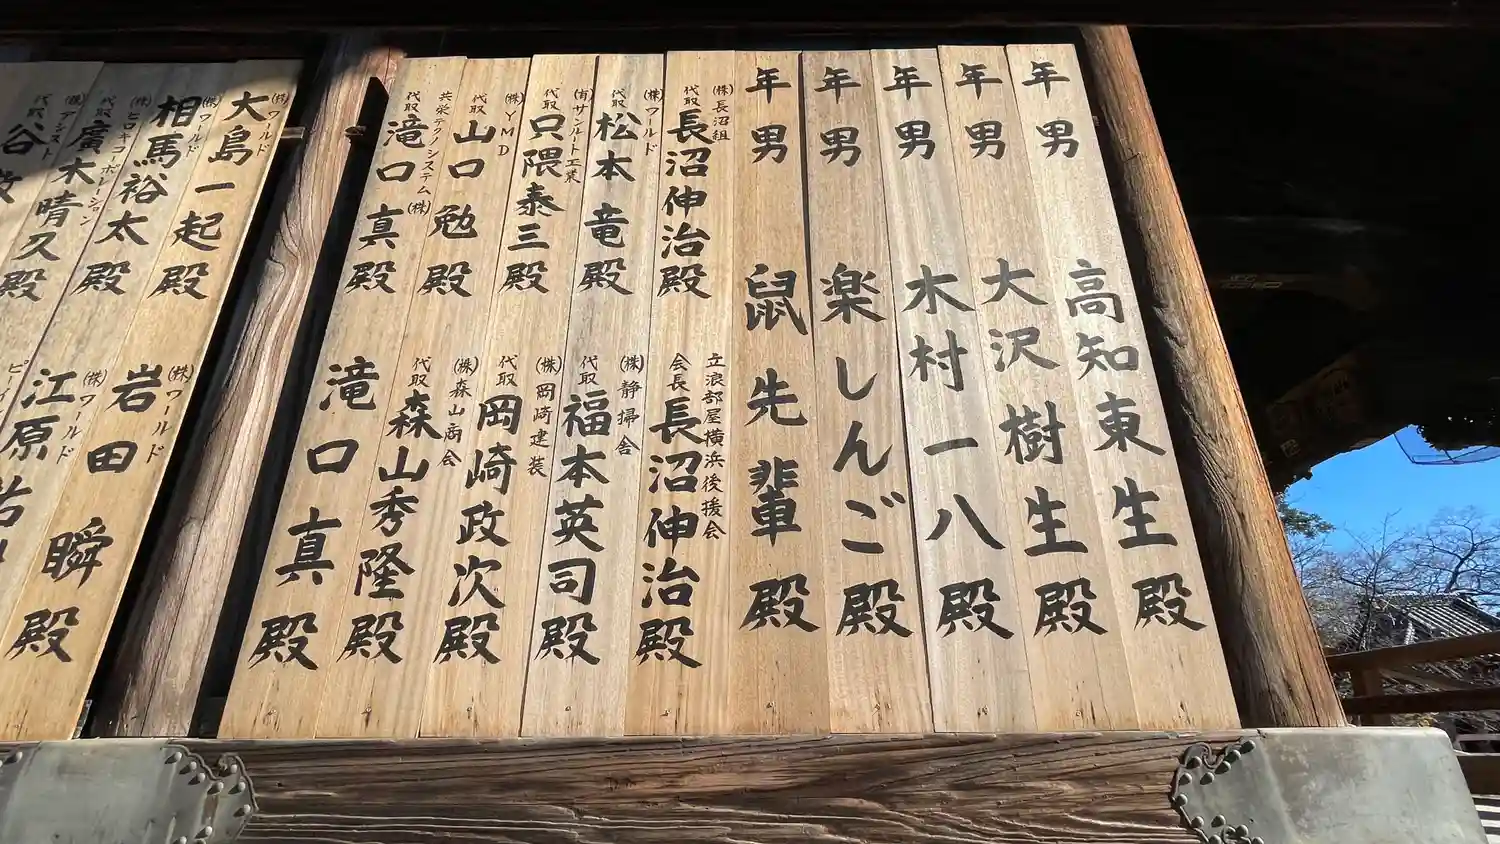 年男 高知東生殿
年男 大沢樹生殿
年男 木村一八殿
年男 楽しんご殿
年男 鼠先輩殿
(株)長沼組
代取 長沼伸治殿
立浪部屋横浜後援会
会長 長沼伸治殿
(株)ワールド
代取 松本竜殿
(株)静掃舎
代取 福本英司殿
(有)サンルート工業
代取 只隈泰三殿
(株)岡崎建装
代取 岡崎政次殿
(株)YMD
代取 山口勉殿
(株)森山商会
代取 森山秀隆殿
共栄テクノシステム(株)
代取 滝口真殿
滝口真殿
(株)ワールド
大島一起殿
(株)ワールド
岩田瞬殿
(株)ワールド
相馬裕太殿
(株)ワールド
江原
(株)ヒロキコーポレーション
代取 廣木晴久殿
(株)アシスト
代取 谷
殿